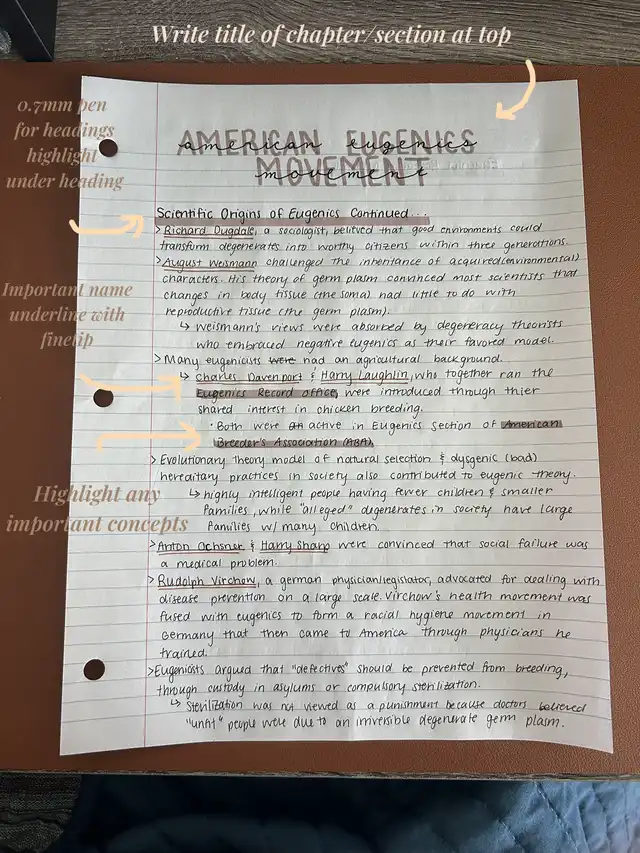 Write title of chapter/section at top
0.7mm pen
for headings
highlight
under heading
AMERICAN EUGENICS
american eugenics
MOVEMENT
movement
Scientific Origins of Eugenics Continued...
> Richard Dugdale, a sociologist, believed that good environments could
transform degenerates into worthy citizens within three generations.
> August Weismann challenged the inheritance of acquired (environmental)
characters. His theory of germ plasm convinced most scientists that
changes in body tissue (the soma) had little to do with
reproductive tissue (the germ plasm).
↳ Weismann's views were absorbed by degeneracy theorists
who embraced negative eugenics as their favored model.
Important name
underline with
finetip
> Many eugenicists were had an agricultural background.
↳ Charles Davenport & Harry Laughlin, who together ran the
Eugenics Record office, were introduced through thier
shared interest in chicken breeding.
• Both were an active in Eugenics Section of American
Breeder's Association (ABA).
> Evolutionary Theory model of natural selection & dysgenic (bad)
hereditary practices in society also contributed to eugenic theory.
↳ highly intelligent people having fewer children & smaller
families, while "alleged" degenerates in society have large
families w/ many children.
Highlight any
important concepts
> Anton Ochsner & Harry Sharp were convinced that social failure was
a medical problem.
> Rudolph Virchow, a german physician/legislator, advocated for dealing with
disease prevention on a large scale. Virchow's health movement was
fused with eugenics to form a racial hygiene movement in
Germany that then came to America through physicians he
trained.
> Eugenicists argued that "defectives" should be prevented from breeding,
through custody in asylums or compulsory sterilization.
↳ Sterilization was not viewed as a punishment because doctors believed
"unfit" people were due to an irriversible degenerate germ plasm.